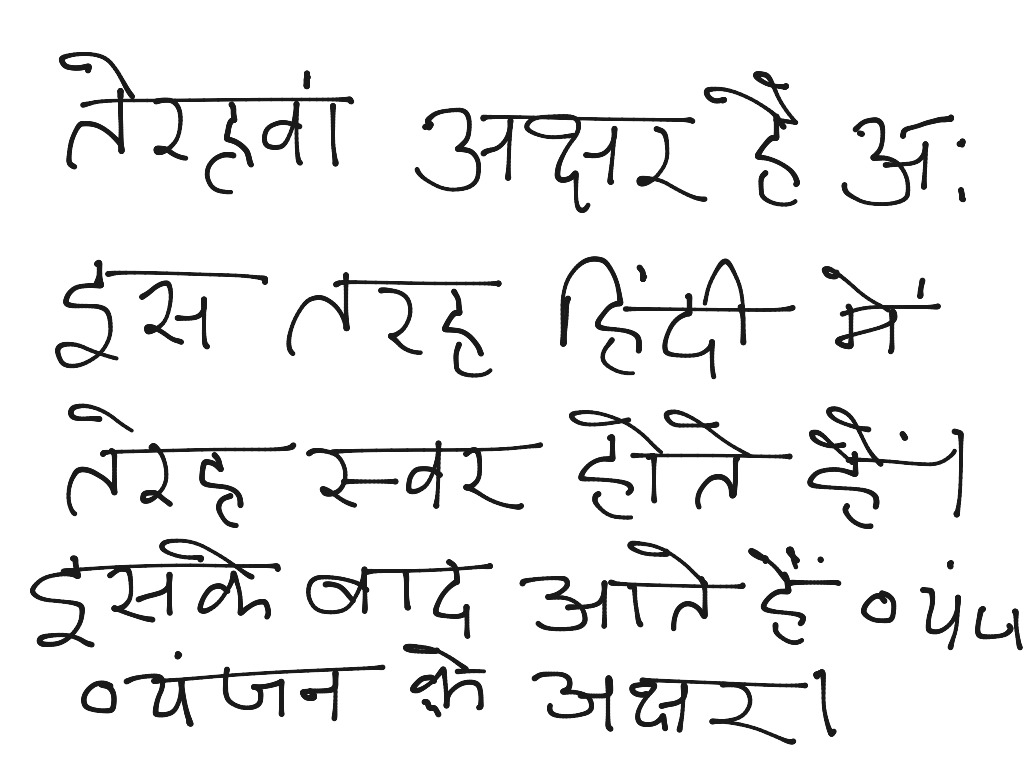 तेरहवां अक्षर है अः
इस तरह हिंदी में
तेरह स्वर होते हैं।
इसके बाद आते हैं
व्यंजन के अक्षर।